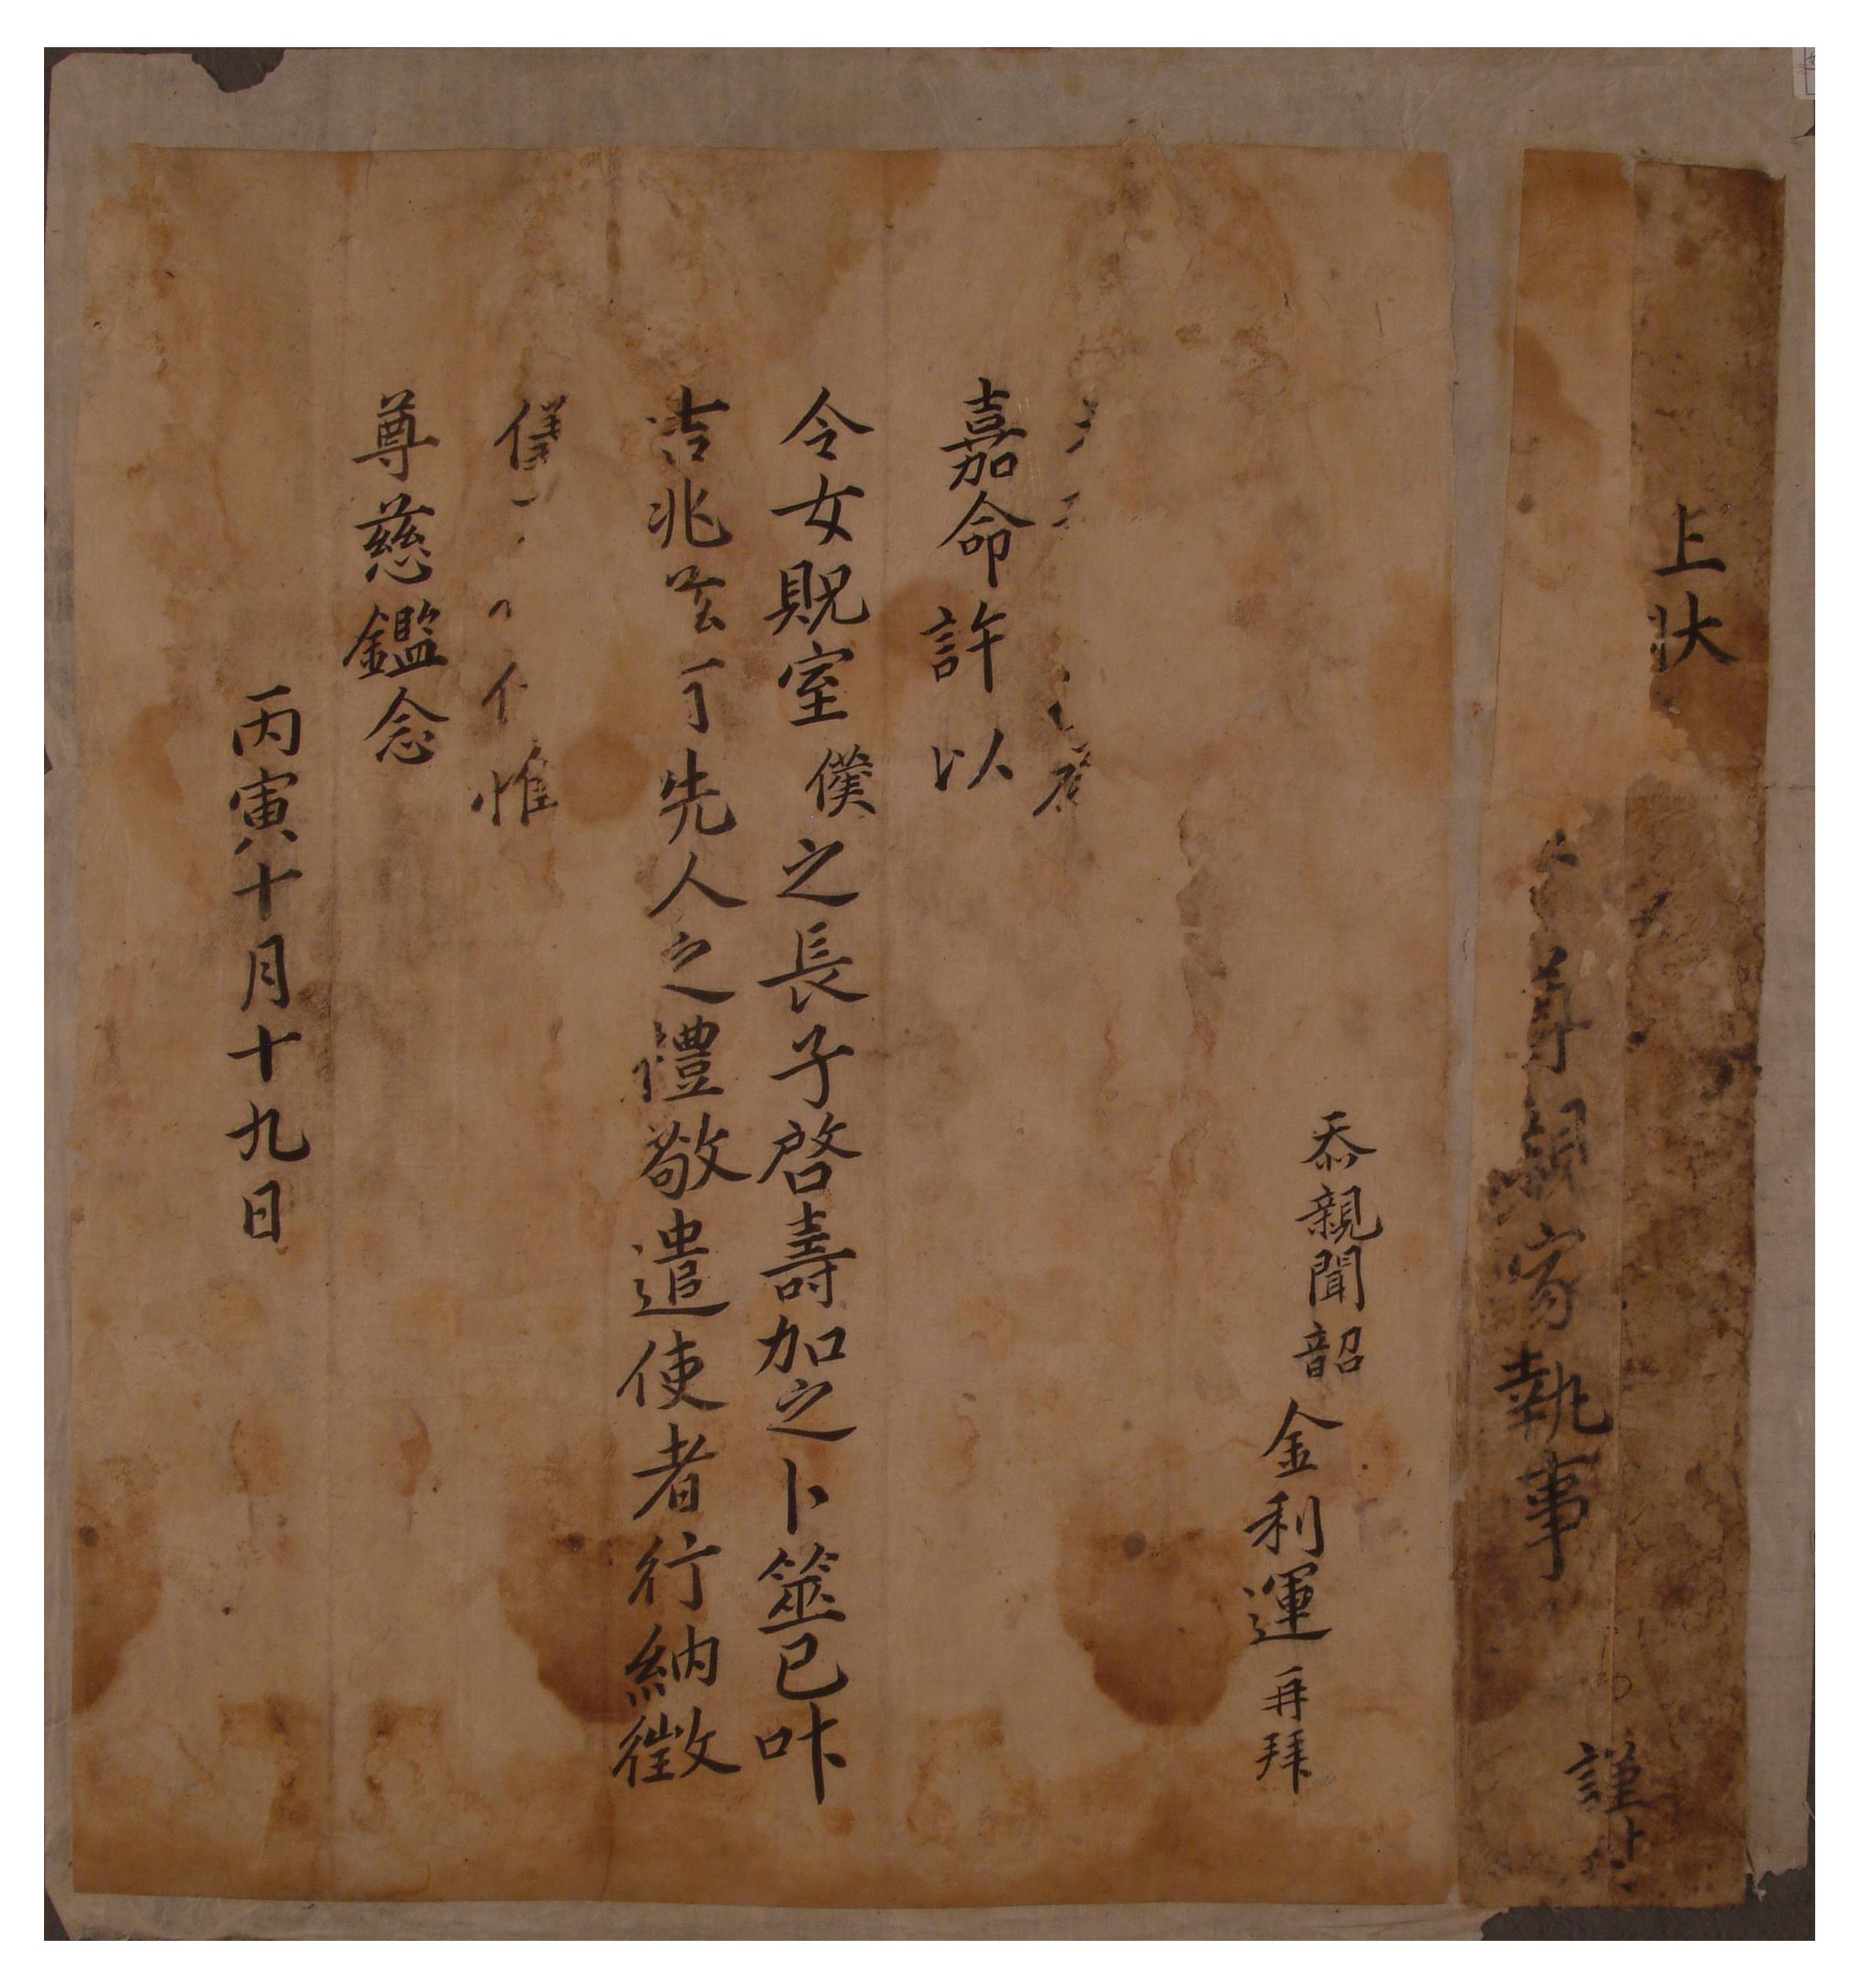 上狀
尊親家執事
謹
忝親聞韶金利運再拜
嘉命許以
令女貺室僕之長子啓壽加之卜筮已叶
吉兆玆先人之禮敬遣使者行納徵
儀惟
尊慈鑑念
丙寅十月十九日